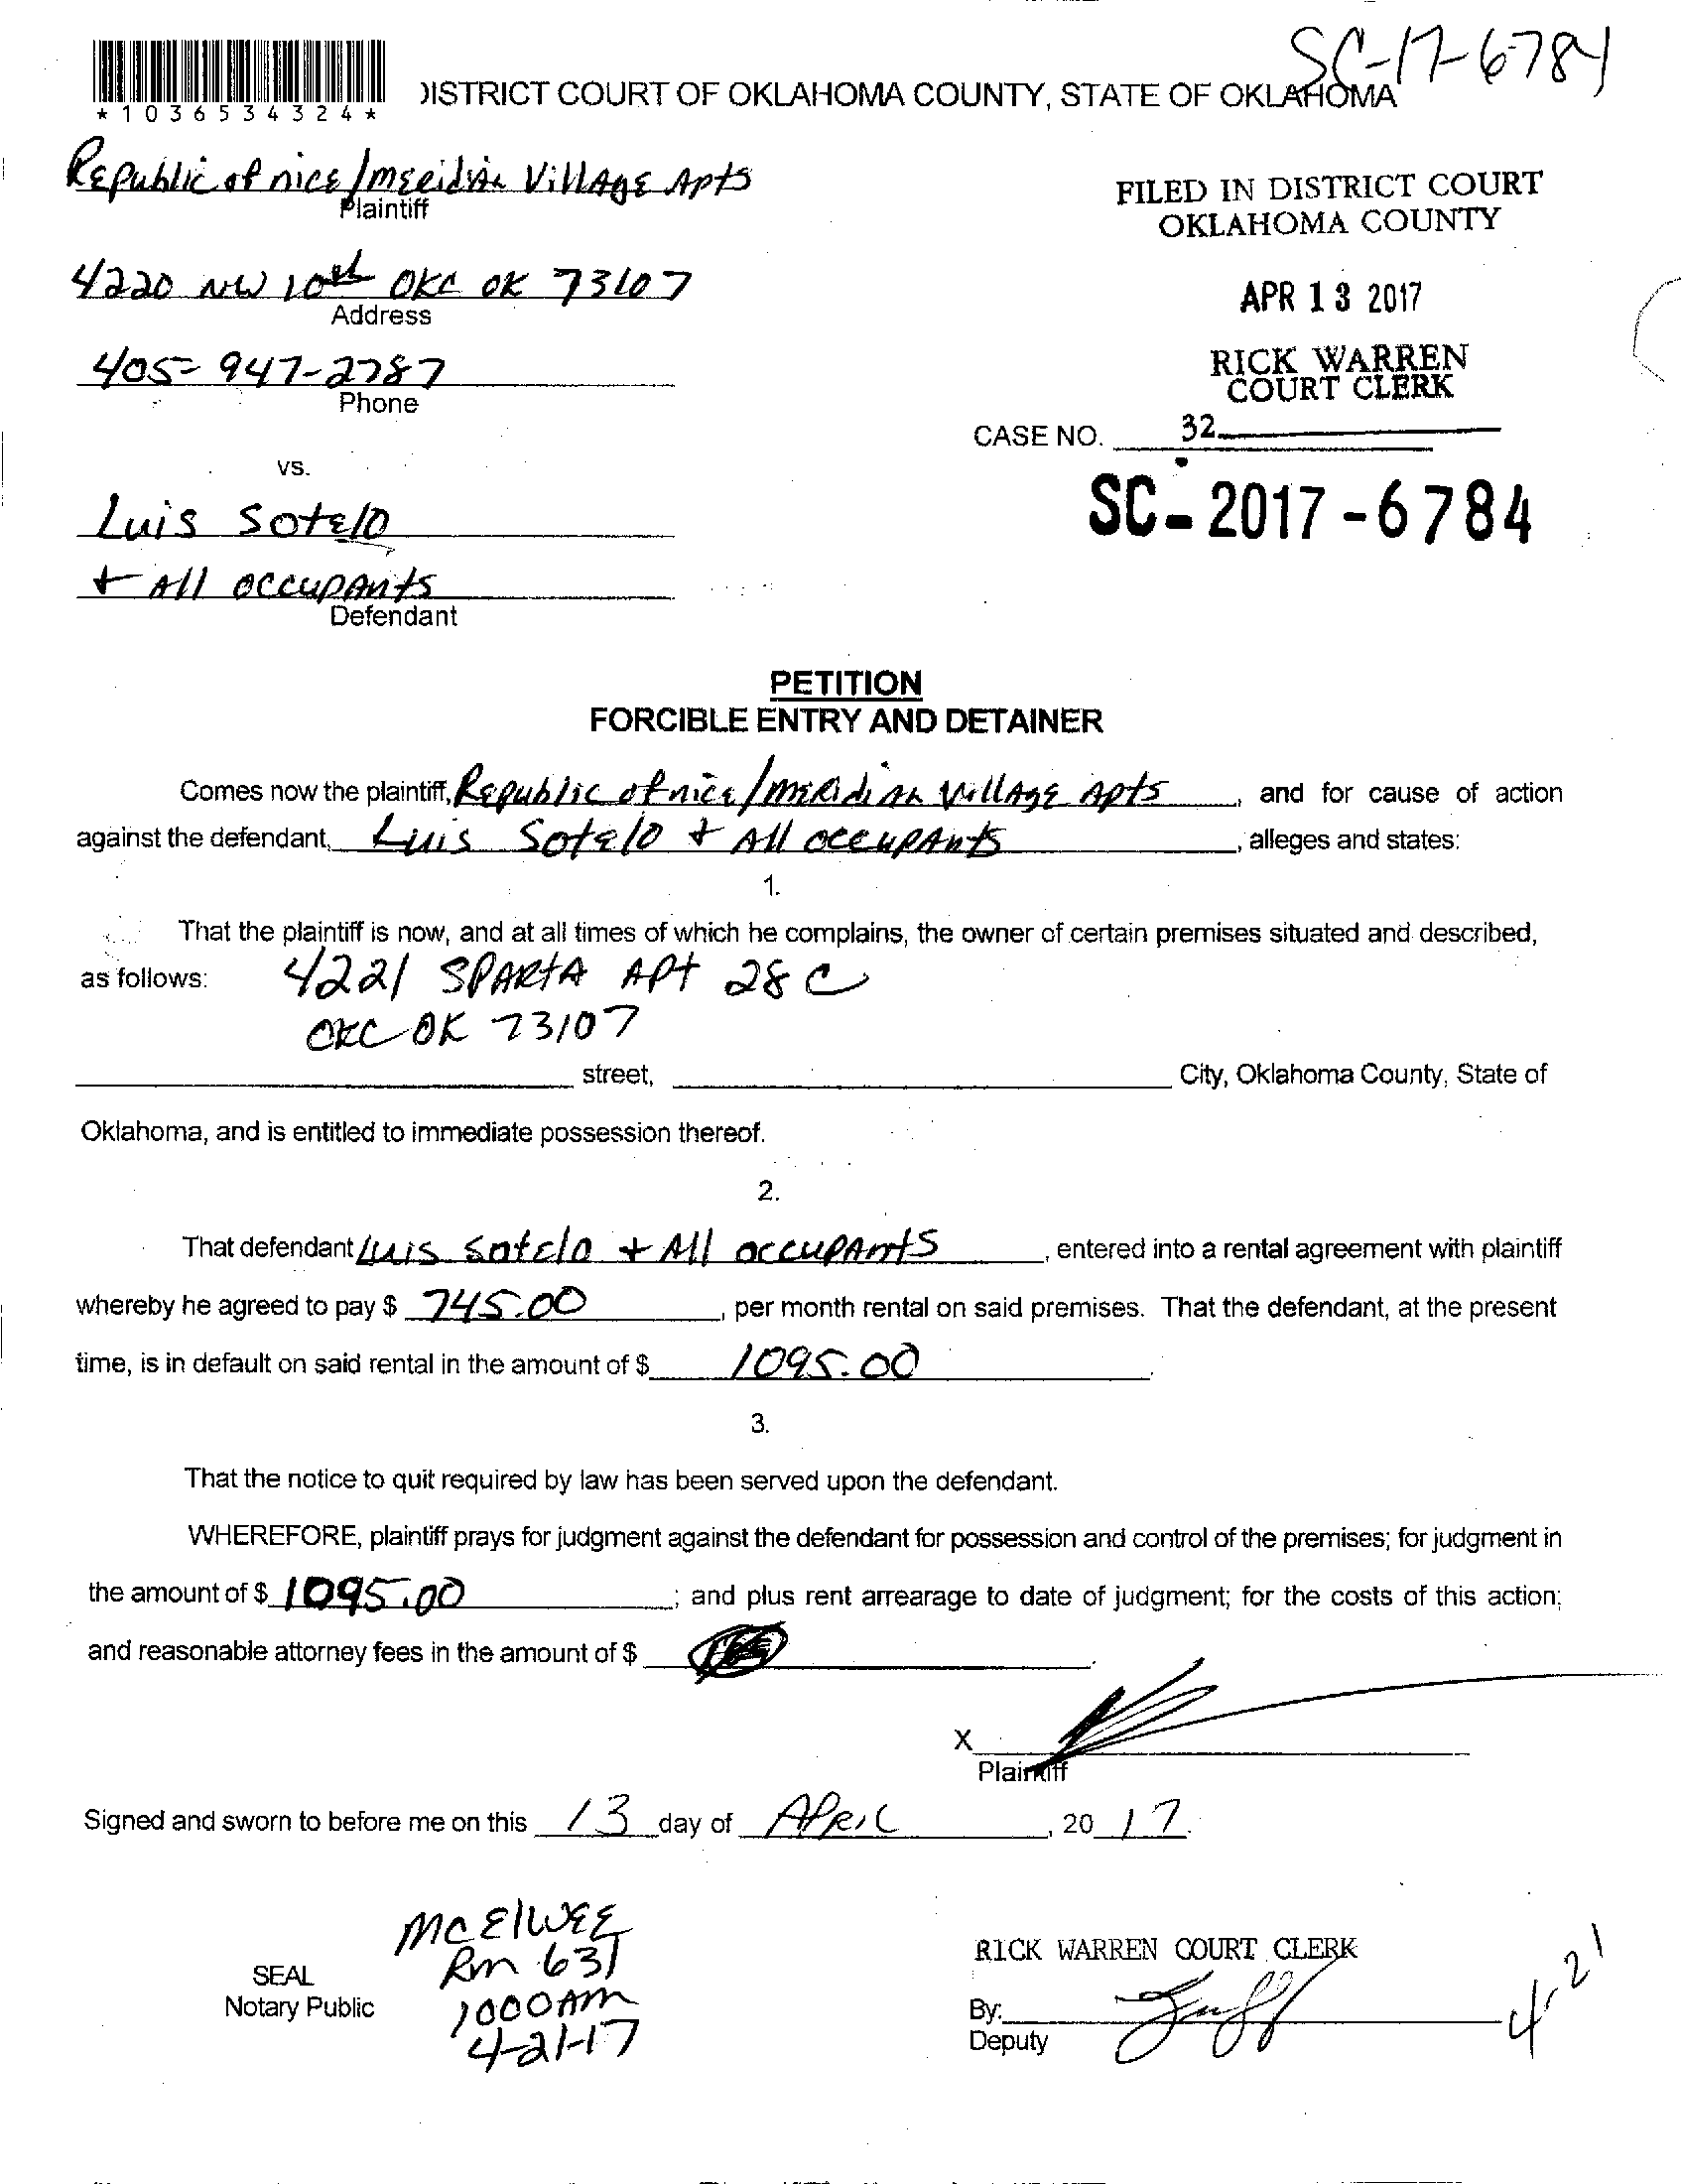 SC-17-6784
*1036534324*
DISTRICT COURT OF OKLAHOMA COUNTY, STATE OF OKLAHOMA
Republic of nice/meridian Village Apts
Plaintiff
FILED IN DISTRICT COURT
OKLAHOMA COUNTY
4220 NW 10th OKC OK 73107
Address
APR 13 2017
405-947-2787
Phone
RICK WARREN
COURT CLERK
CASE NO. 32
vs.
SC-2017-6784
Luis Sotelo
+ All occupants
Defendant
PETITION
FORCIBLE ENTRY AND DETAINER
Comes now the plaintiff, Republic of nice/meridian Village Apts, and for cause of action
against the defendant, Luis Sotelo + All occupants, alleges and states:
1.
That the plaintiff is now, and at all times of which he complains, the owner of certain premises situated and described,
as follows: 4221 SPARTA APt 28 C
OKC OK 73107
street, City, Oklahoma County, State of
Oklahoma, and is entitled to immediate possession thereof.
2.
That defendant Luis Sotelo + All occupants, entered into a rental agreement with plaintiff
whereby he agreed to pay $ 745.00, per month rental on said premises. That the defendant, at the present
time, is in default on said rental in the amount of $ 1095.00.
3.
That the notice to quit required by law has been served upon the defendant.
WHEREFORE, plaintiff prays for judgment against the defendant for possession and control of the premises; for judgment in
the amount of $ 1095.00; and plus rent arrearage to date of judgment; for the costs of this action;
and reasonable attorney fees in the amount of $
X
Plaintiff
Signed and sworn to before me on this 13 day of APRIL, 20 17.
McElwee
Rm 631
1000Am
4-21-17
SEAL
Notary Public
RICK WARREN COURT CLERK
By:
Deputy
4-21